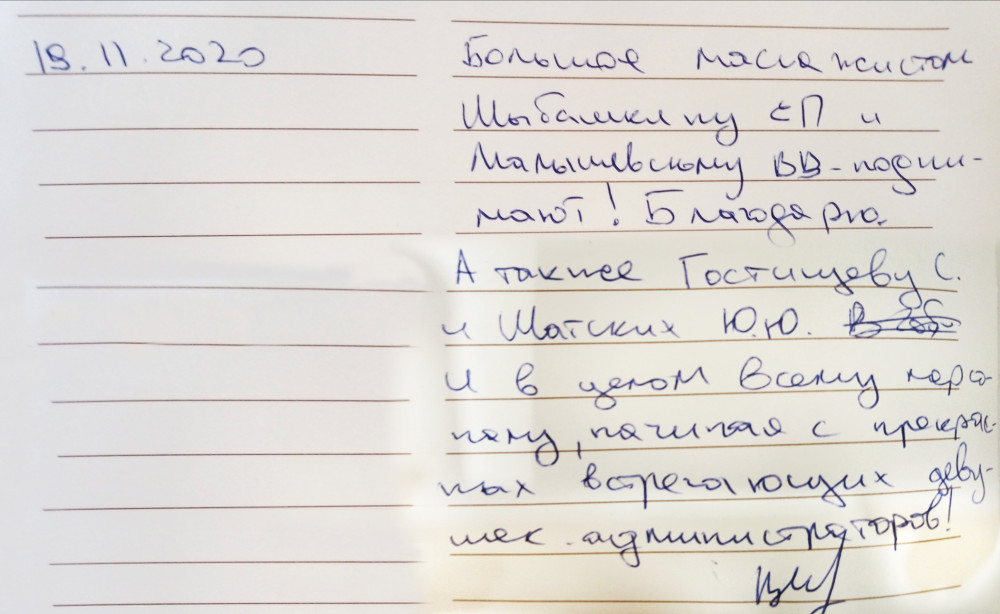 19.11.2020
Большое массажистам
Шыбашкину ЕП и
Малышевскому ВВ - подни-
мают! Благодарю.
А также Гостищеву С.
и Шатских Ю.Ю.
И в целом всему персо-
налу, начиная с прекрас-
ных встречающих деву-
шек администраторов!